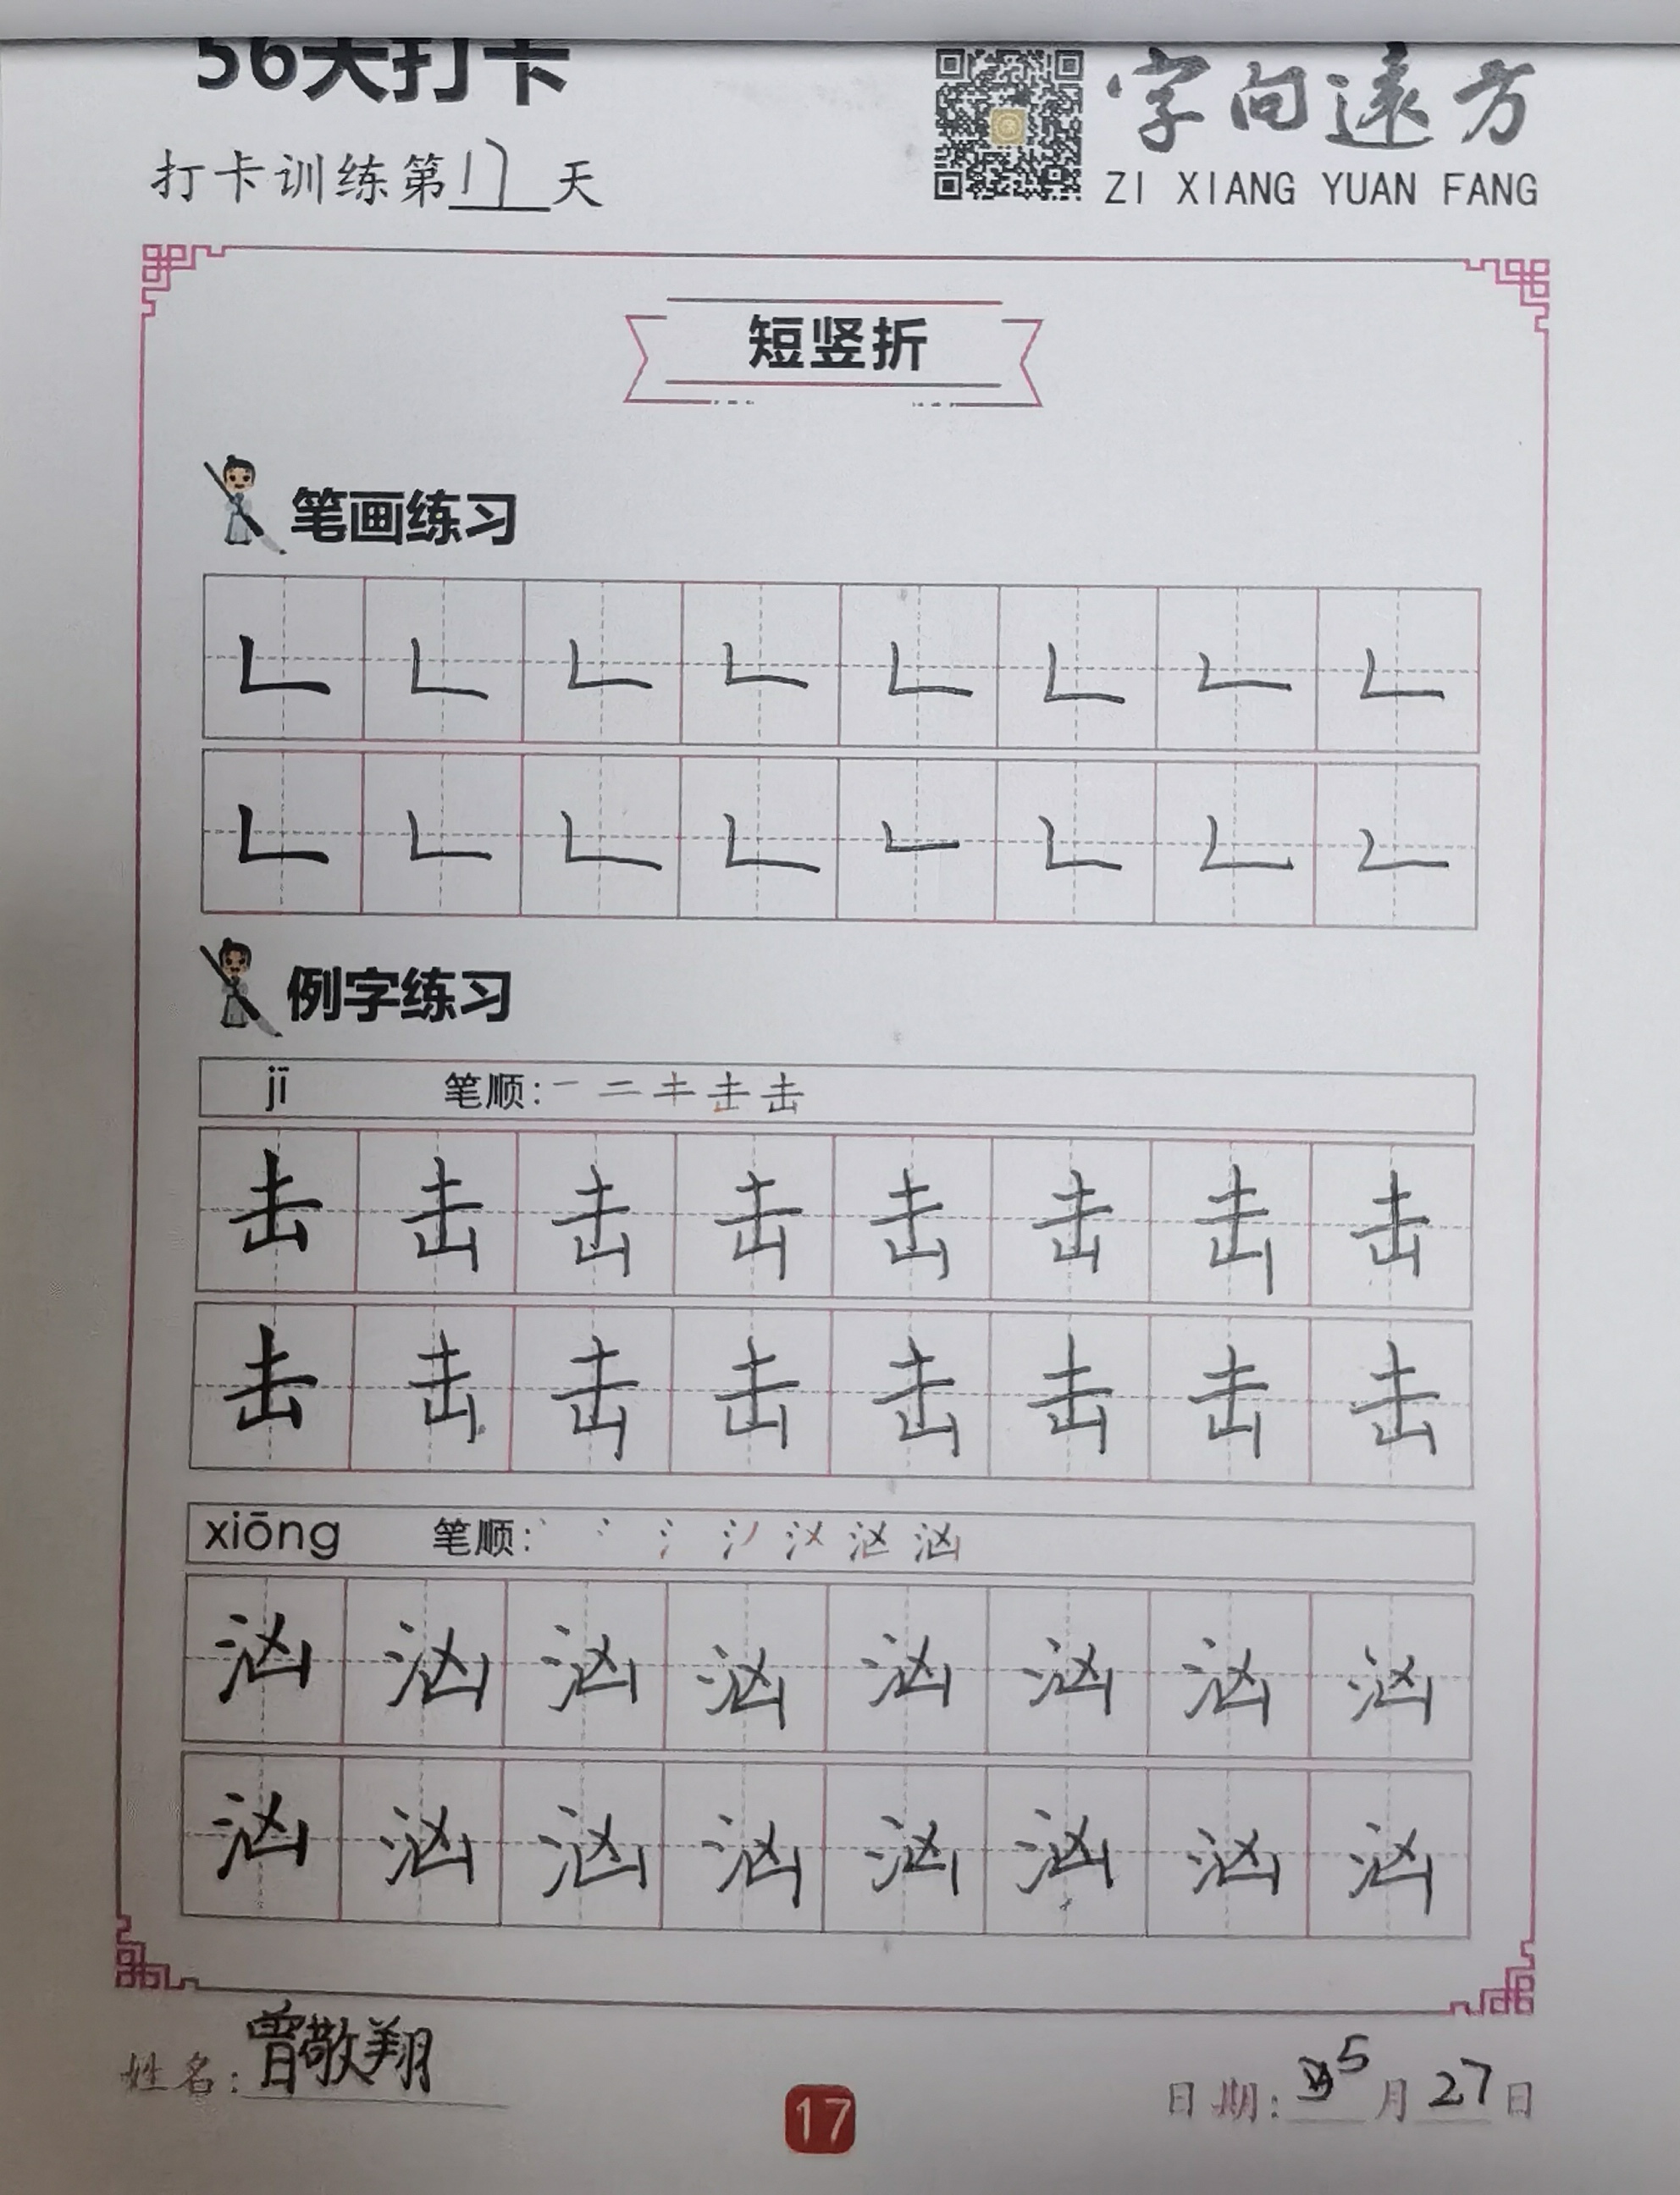 56天打卡
字向遠方
打卡训练第17天
ZI XIANG YUAN FANG
短竖折
笔画练习
例字练习
jī 笔顺: 一 二 キ 击 击
击 击 击 击 击 击 击 击
击 击 击 击 击 击 击 击
xiōng 笔顺: 汹
汹 汹 汹 汹 汹 汹 汹 汹
汹 汹 汹 汹 汹 汹 汹 汹
姓名: 曾敬翔
日期: 5月27日
17